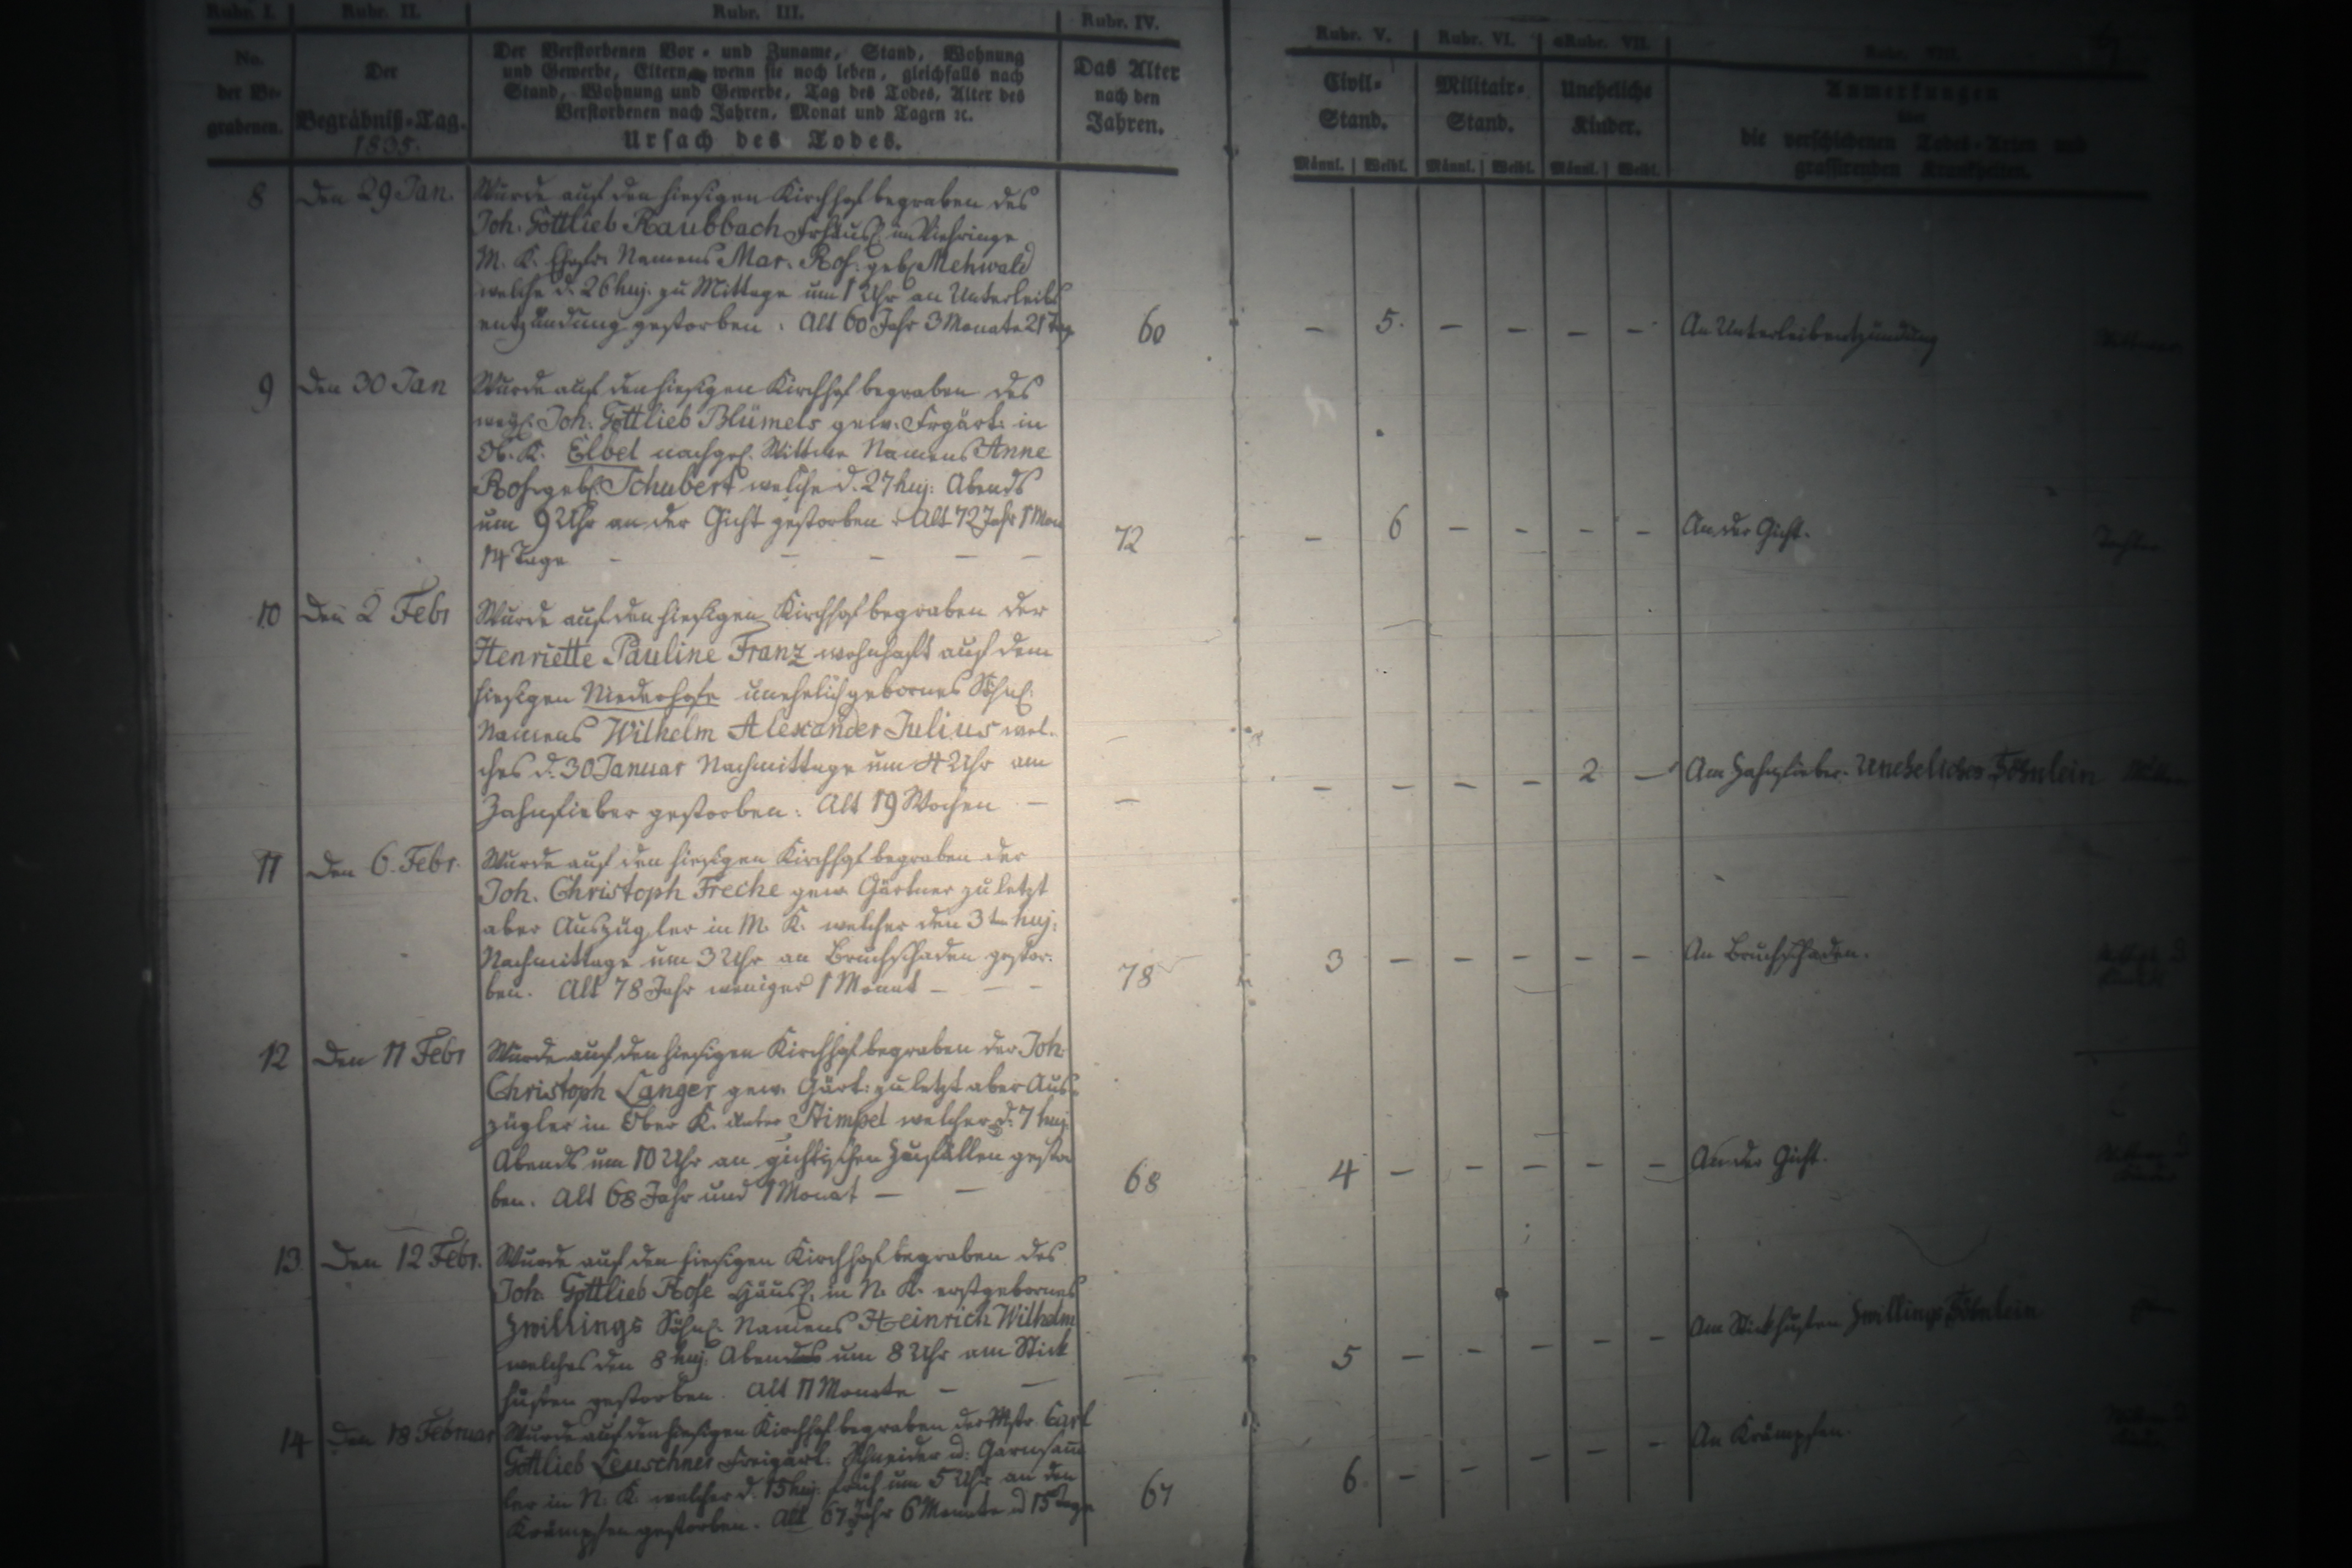 Rubr. I. Rubr. II. Rubr. III. Rubr. IV. Rubr. V. Rubr. VI. Rubr. VII. Rubr. VIII.
No. der Be- grabenen.
Der Begräbniß-Tag. 1835.
Der Verstorbenen Vor- und Zuname, Stand, Wohnung
und Gewerbe, Eltern, wenn sie noch leben, gleichfalls nach
Stand, Wohnung und Gewerbe, Tag des Todes, Alter des
Verstorbenen nach Jahren, Monat und Tagen ꝛc.
Ursach des Todes.
Das Alter nach den Jahren.
Civil- Stand.
Militair- Stand.
Uneheliche Kinder.
Anmerkungen
über
die verschiedenen Todes-Arten und
grassirenden Krankheiten.
Männl. Weibl. Männl. Weibl. Männl. Weibl.
8 Den 29 Jan. Wurde auf den hiesigen Kirchhof begraben des
Joh. Gottlieb Raubbach
M. K. Namens Mar. Ros. geb. Mehwald
welche d. 26 huj. zu Mittage um 1 Uhr an Unterleibs
entzündung gestorben. Alt 60 Jahr 3 Monate 21 Tag
60 – 5. – – – – An Unterleibentzündung
9 Den 30 Jan Wurde auf den hiesigen Kirchhof begraben des
Joh: Gottlieb Blümels gew. Frgärt: in
Ob. K. Elbel nachgel. Wittwe Namens Anne
Ros. geb. Schubert welche d. 27 huj: Abends
um 9 Uhr an der Gicht gestorben. Alt 72 Jahr 1 Mon
14 Tage – – – – –
72 – 6 – – – – An der Gicht.
10 Den 2 Febr Wurde auf den hiesigen Kirchhof begraben der
Henriette Pauline Franz wohnhaft auf dem
hiesigen Niederhofe unehelich gebornes Söhnl.
Namens Wilhelm Alexander Julius wel-
ches d. 30 Januar Nachmittage um 4 Uhr am
Zahnfieber gestorben: Alt 19 Wochen –
– – – – – 2 – Am Zahnfieber. Uneheliches Söhnlein
11 Den 6. Febr. Wurde auf den hiesigen Kirchhof begraben der
Joh. Christoph Freche gew. Gärtner zuletzt
aber Auszügler in M. K. welcher den 3ten huj:
Nachmittage um 3 Uhr an Bruchschaden gestor-
ben. Alt 78 Jahr weniger 1 Monat – – –
78 3 – – – – – An Bruchschaden.
12 Den 11 Febr Wurde auf den hiesigen Kirchhof begraben der Joh.
Christoph Langer gew. Gärt: zuletzt aber Aus-
zügler in Ober K. unter Stimpel welcher d. 7 huj.
Abends um 10 Uhr an gichtischen Zufällen gestor
ben. Alt 68 Jahr und 1 Monat – –
68 4 – – – – – An der Gicht.
13 Den 12 Febr. Wurde auf den hiesigen Kirchhof begraben des
Joh. Gottlieb Rose Häusl. in N. K. erstgebornes
Zwillings Söhnl. Namens Heinrich Wilhelm
welches den 8 huj. Abends um 8 Uhr am Stick
husten gestorben. Alt 11 Monate – –
5 – – – – – Am Stickhusten Zwillings Söhnlein
14 Den 18 Februar Wurde auf den hiesigen Kirchhof begraben der Mstr. Carl
Gottlieb Leuschner Freigärt. Schneider u: Garnsam̅
ler in N. K. welcher d. 15 huj. früh um 5 Uhr an den
Krämpfen gestorben. Alt 67 Jahr 6 Monate u 15 Tage
67 6 – – – – – An Krämpfen.